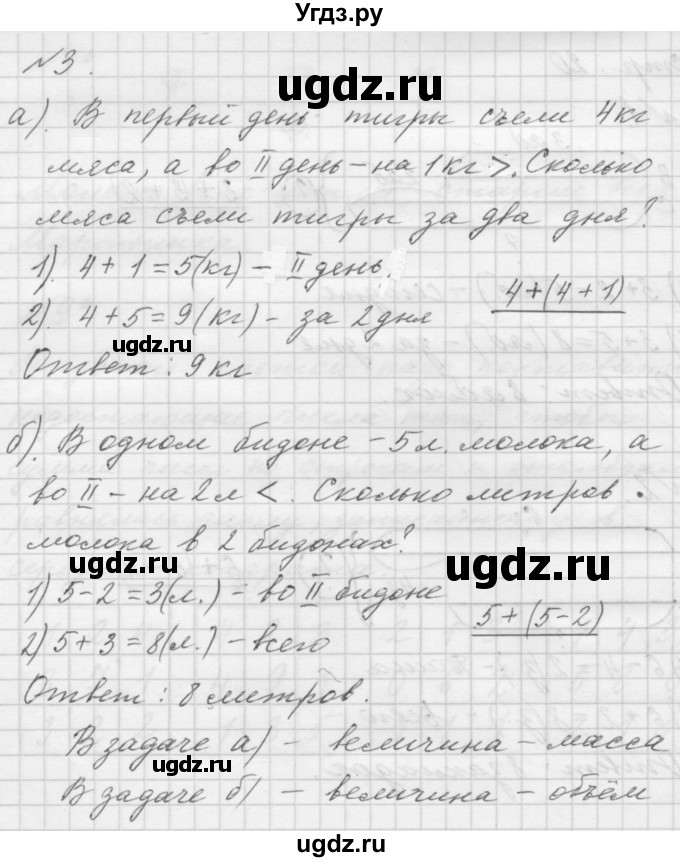 Угдз.ру
№3.
ugdz.ru
а). В первый день тигры съели 4кг
мяса, а во II день – на 1кг >. Сколько
мяса съели тигры за два дня?
1). 4 + 1 = 5(кг) – II день.
ugdz.ru
4+(4+1)
2). 4 + 5 = 9(кг) – за 2дня
ugdz.ru
Ответ : 9кг
б). В одном бидоне – 5л. молока, а
во II – на 2л <. Сколько литров
молока в 2 бидонах?
ugdz.ru
ugdz.ru
1) 5-2 = 3(л.) – во II бидоне
5+(5-2)
2) 5 + 3 = 8(л.) – всего
Ответ : 8 литров.
ugdz.ru
В задаче а) – величина – масса
ugdz.ru
В задаче б) – величина – объём
ugdz.ru